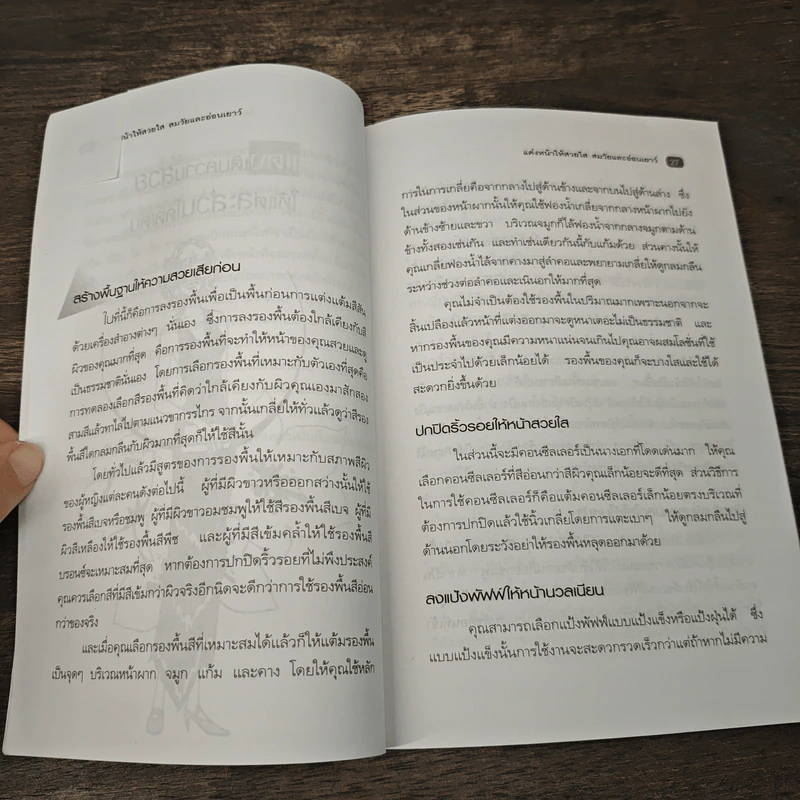 หน้าให้สวยใส สมวัยและอ่อนเยาว์
สร้างพื้นฐานให้ความสวยเสียก่อน
ในที่นี้ก็คือการลงรองพื้นเพื่อเป็นพื้นก่อนการแต่งแต้มสีสัน
ด้วยเครื่องสำอางต่างๆ นั่นเอง ซึ่งการลงรองพื้นต้องใกล้เคียงกับสี
ผิวของคุณมากที่สุด คือการรองพื้นที่จะทำให้หน้าของคุณสวยและดู
เป็นธรรมชาตินั่นเอง โดยการเลือกรองพื้นที่เหมาะกับตัวเองที่สุดคือ
การทดลองเลือกสีรองพื้นที่คิดว่าใกล้เคียงกับผิวคุณเองมาสักสอง
สามสีแล้วทาไล่ไปตามแนวขากรรไกร จากนั้นเกลี่ยให้ทั่วแล้วดูว่าสีรอง
พื้นสีใดกลมกลืนกับผิวมากที่สุดก็ให้ใช้สีนั้น
โดยทั่วไปแล้วมีสูตรของการรองพื้นให้เหมาะกับสภาพสีผิว
ของผู้หญิงแต่ละคนดังต่อไปนี้ ผู้ที่มีผิวขาวหรือออกสว่างนั้นให้ใช้
รองพื้นสีเบจหรือชมพู ผู้ที่มีผิวขาวอมชมพูให้ใช้สีรองพื้นสีเบจ ผู้ที่มี
ผิวสีเหลืองให้ใช้รองพื้นสีพีช และผู้ที่มีสีเข้มคล้ำให้ใช้รองพื้นสี
บรอนซ์จะเหมาะสมที่สุด หากต้องการปกปิดริ้วรอยที่ไม่พึงประสงค์
คุณควรเลือกสีที่มีสีเข้มกว่าผิวจริงอีกนิดจะดีกว่าการใช้รองพื้นสีอ่อน
กว่าของจริง
และเมื่อคุณเลือกรองพื้นสีที่เหมาะสมได้แล้วก็ให้แต้มรองพื้น
เป็นจุดๆ บริเวณหน้าผาก จมูก แก้ม และคาง โดยให้คุณใช้หลัก
แต่งหน้าให้สวยใส สมวัยและอ่อนเยาว์ 27
การในการเกลี่ยคือจากกลางไปสู่ด้านข้างและจากบนไปสู่ด้านล่าง ซึ่ง
ในส่วนของหน้าผากนั้นให้คุณใช้ฟองน้ำเกลี่ยจากกลางหน้าผากไปยัง
ด้านข้างซ้ายและขวา บริเวณจมูกก็ไล้ฟองน้ำจากกลางจมูกตามด้าน
ข้างทั้งสองเช่นกัน และทำเช่นเดียวกันนี้กับแก้มด้วย ส่วนคางนั้นให้
คุณเกลี่ยฟองน้ำไล้จากคางมาสู่ลำคอและพยายามเกลี่ยให้ดูกลมกลืน
ระหว่างช่วงต่อลำคอและเนินอกให้มากที่สุด
คุณไม่จำเป็นต้องใช้รองพื้นในปริมาณมากเพราะนอกจากจะ
สิ้นเปลืองแล้วหน้าที่แต่งออกมาจะดูหนาเตอะไม่เป็นธรรมชาติ และ
หากรองพื้นของคุณมีความหนาแน่นจนเกินไปคุณอาจผสมโลชั่นที่ใช้
เป็นประจำไปด้วยเล็กน้อยได้ รองพื้นของคุณก็จะบางใสและใช้ได้
สะดวกยิ่งขึ้นด้วย
ปกปิดริ้วรอยให้หน้าสวยใส
ในส่วนนี้จะมีคอนซีลเลอร์เป็นนางเอกที่โดดเด่นมาก ให้คุณ
เลือกคอนซีลเลอร์ที่สีอ่อนกว่าสีผิวคุณเล็กน้อยจะดีที่สุด ส่วนวิธีการ
ในการใช้คอนซีลเลอร์ก็คือแต้มคอนซีลเลอร์เล็กน้อยตรงบริเวณที่
ต้องการปกปิดแล้วใช้นิ้วเกลี่ยโดยการแตะเบาๆ ให้ดูกลมกลืนไปสู่
ด้านนอกโดยระวังอย่าให้รองพื้นหลุดออกมาด้วย
ลงแป้งพัฟฟ์ให้หน้านวลเนียน
คุณสามารถเลือกแป้งพัฟฟ์แบบแป้งแข็งหรือแป้งฝุ่นได้ ซึ่ง
แบบแป้งแข็งนั้นการใช้งานจะสะดวกรวดเร็วกว่าแต่ถ้าหากไม่มีความ